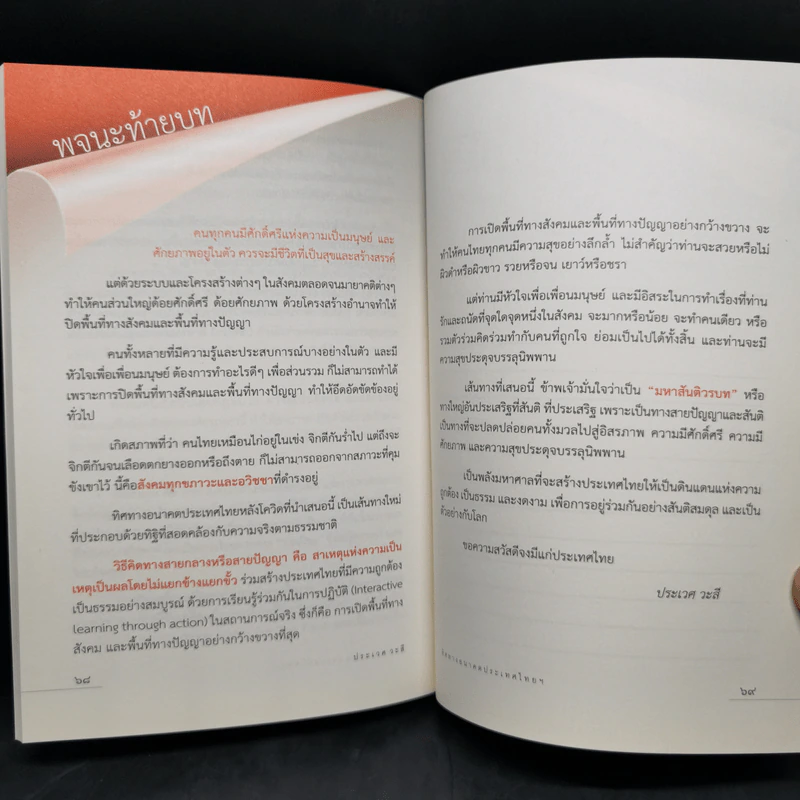 พจนะท้ายบท
คนทุกคนมีศักดิ์ศรีแห่งความเป็นมนุษย์ และ
ศักยภาพอยู่ในตัว ควรจะมีชีวิตที่เป็นสุขและสร้างสรรค์
แต่ด้วยระบบและโครงสร้างต่างๆ ในสังคมตลอดจนมายาคติต่างๆ
ทำให้คนส่วนใหญ่ด้อยศักดิ์ศรี ด้อยศักยภาพ ด้วยโครงสร้างอำนาจทำให้
ปิดพื้นที่ทางสังคมและพื้นที่ทางปัญญา
คนทั้งหลายที่มีความรู้และประสบการณ์บางอย่างในตัว และมี
หัวใจเพื่อเพื่อนมนุษย์ ต้องการทำอะไรดีๆ เพื่อส่วนรวม ก็ไม่สามารถทำได้
เพราะการปิดพื้นที่ทางสังคมและพื้นที่ทางปัญญา ทำให้อึดอัดขัดข้องอยู่
ทั่วไป
เกิดสภาพที่ว่า คนไทยเหมือนไก่อยู่ในเข่ง จิกตีกันร่ำไป แต่ถึงจะ
จิกตีกันจนเลือดตกยางออกหรือถึงตาย ก็ไม่สามารถออกจากสภาวะที่คุม
ขังเขาไว้ นี้คือสังคมทุกขภาวะและอวิชชาที่ดำรงอยู่
ทิศทางอนาคตประเทศไทยหลังโควิดที่นำเสนอนี้ เป็นเส้นทางใหม่
ที่ประกอบด้วยทิฐิที่สอดคล้องกับความจริงตามธรรมชาติ
วิธีคิดทางสายกลางหรือสายปัญญา คือ สาเหตุแห่งความเป็น
เหตุเป็นผลโดยไม่แยกข้างแยกขั้ว ร่วมสร้างประเทศไทยที่มีความถูกต้อง
เป็นธรรมอย่างสมบูรณ์ ด้วยการเรียนรู้ร่วมกันในการปฏิบัติ (Interactive
learning through action) ในสถานการณ์จริง ซึ่งก็คือ การเปิดพื้นที่ทาง
สังคม และพื้นที่ทางปัญญาอย่างกว้างขวางที่สุด
ประเวศ วะสี
๖๘
การเปิดพื้นที่ทางสังคมและพื้นที่ทางปัญญาอย่างกว้างขวาง จะ
ทำให้คนไทยทุกคนมีความสุขอย่างลึกล้ำ ไม่สำคัญว่าท่านจะสวยหรือไม่
ผิวดำหรือผิวขาว รวยหรือจน เยาว์หรือชรา
แต่ท่านมีหัวใจเพื่อเพื่อนมนุษย์ และมีอิสระในการทำเรื่องที่ท่าน
รักและถนัดที่จุดใดจุดหนึ่งในสังคม จะมากหรือน้อย จะทำคนเดียว หรือ
รวมตัวร่วมคิดร่วมทำกับคนที่ถูกใจ ย่อมเป็นไปได้ทั้งสิ้น และท่านจะมี
ความสุขประดุจบรรลุนิพพาน
เส้นทางที่เสนอนี้ ข้าพเจ้ามั่นใจว่าเป็น “มหาสันติวรบท” หรือ
ทางใหญ่อันประเสริฐที่สันติ ที่ประเสริฐ เพราะเป็นทางสายปัญญาและสันติ
เป็นทางที่จะปลดปล่อยคนทั้งมวลไปสู่อิสรภาพ ความมีศักดิ์ศรี ความมี
ศักยภาพ และความสุขประดุจบรรลุนิพพาน
เป็นพลังมหาศาลที่จะสร้างประเทศไทยให้เป็นดินแดนแห่งความ
ถูกต้อง เป็นธรรม และงดงาม เพื่อการอยู่ร่วมกันอย่างสันติสมดุล และเป็น
ตัวอย่างกับโลก
ขอความสวัสดีจงมีแก่ประเทศไทย
ประเวศ วะสี
ทิศทางอนาคตประเทศไทยฯ
๖๙